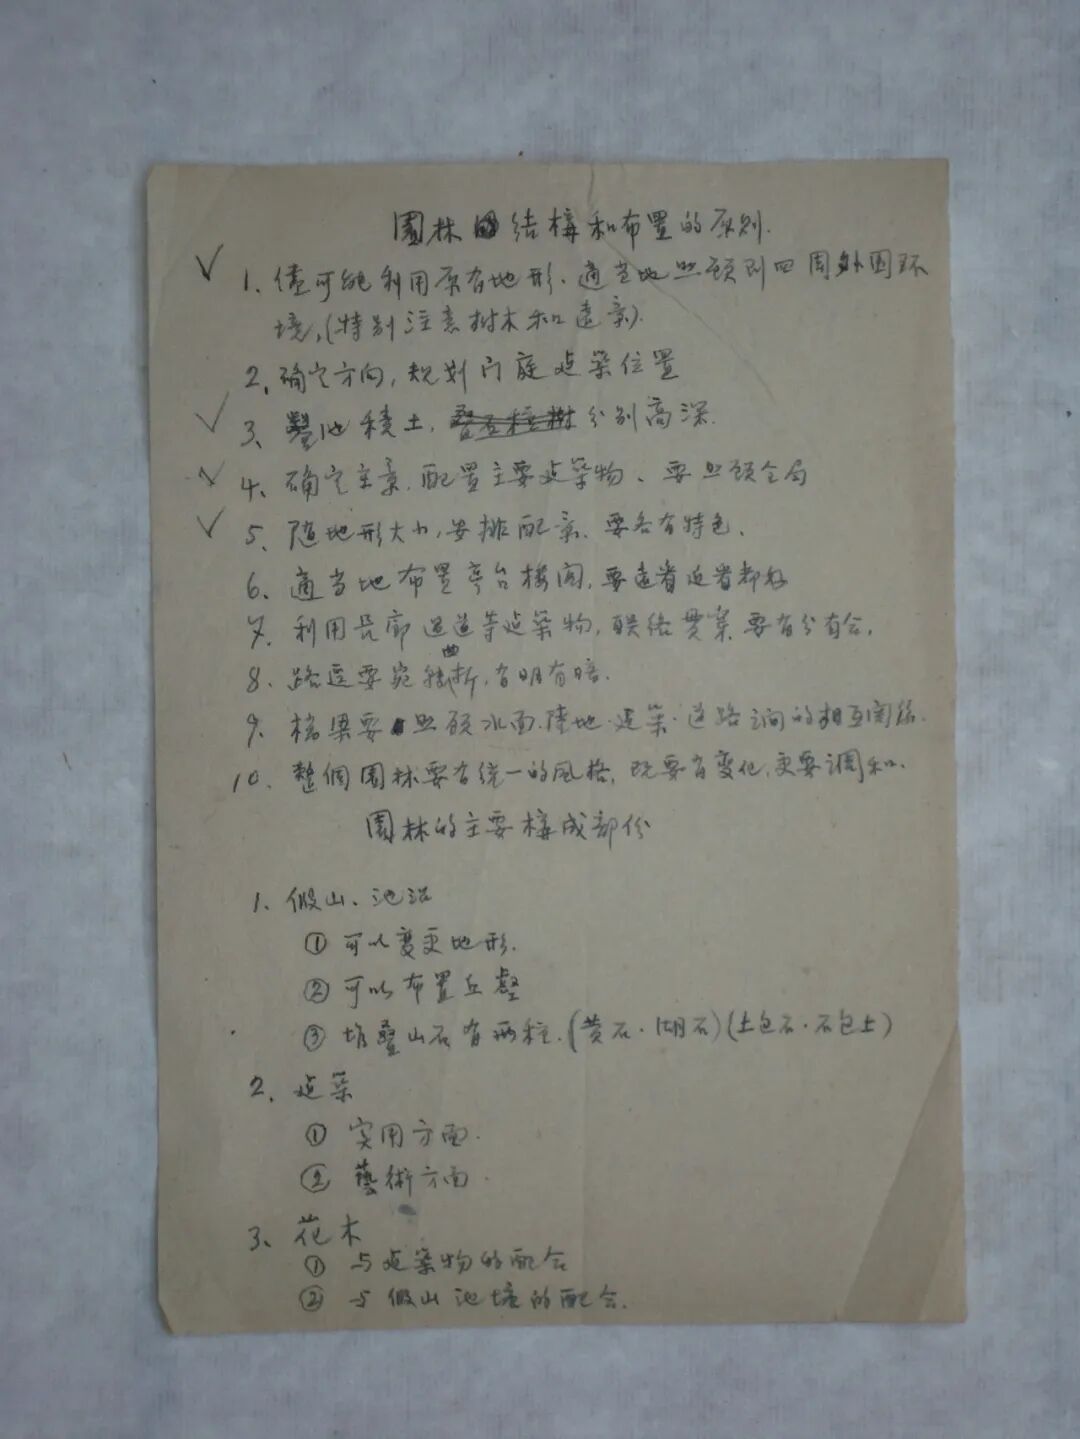 園林結構和布置的原则.
1、儘可能利用原有地形.適当地照顾到四周外围环
境,(特别注意树木和遠景).
2.确定方向,规划门庭建築位置
3、鑿池積土,分别高深.
4、确定主景.配置主要建築物、要照顾全局
5、随地形大小,安排配景.要各有特色、
6、適当地布置亭台楼阁,要遠看近看都好
7、利用長廊 等建築物,联络貫穿 要有分有合.
8、路逕要宛曲折,有明有暗.
9、橋梁要照顾水面.陸地.建築.道路之间的相互関係.
10、整個園林要有统一的風格,既要有变化,更要調和.
園林的主要構成部份
1、假山、池沼
① 可以变更地形.
② 可以布置丘壑
③ 堆叠山石有两种.(黄石.湖石)(土包石.石包土)
2、建築
① 实用方面.
② 藝術方面.
3、花木
① 与建築物的配合
② 与假山池塘的配合.